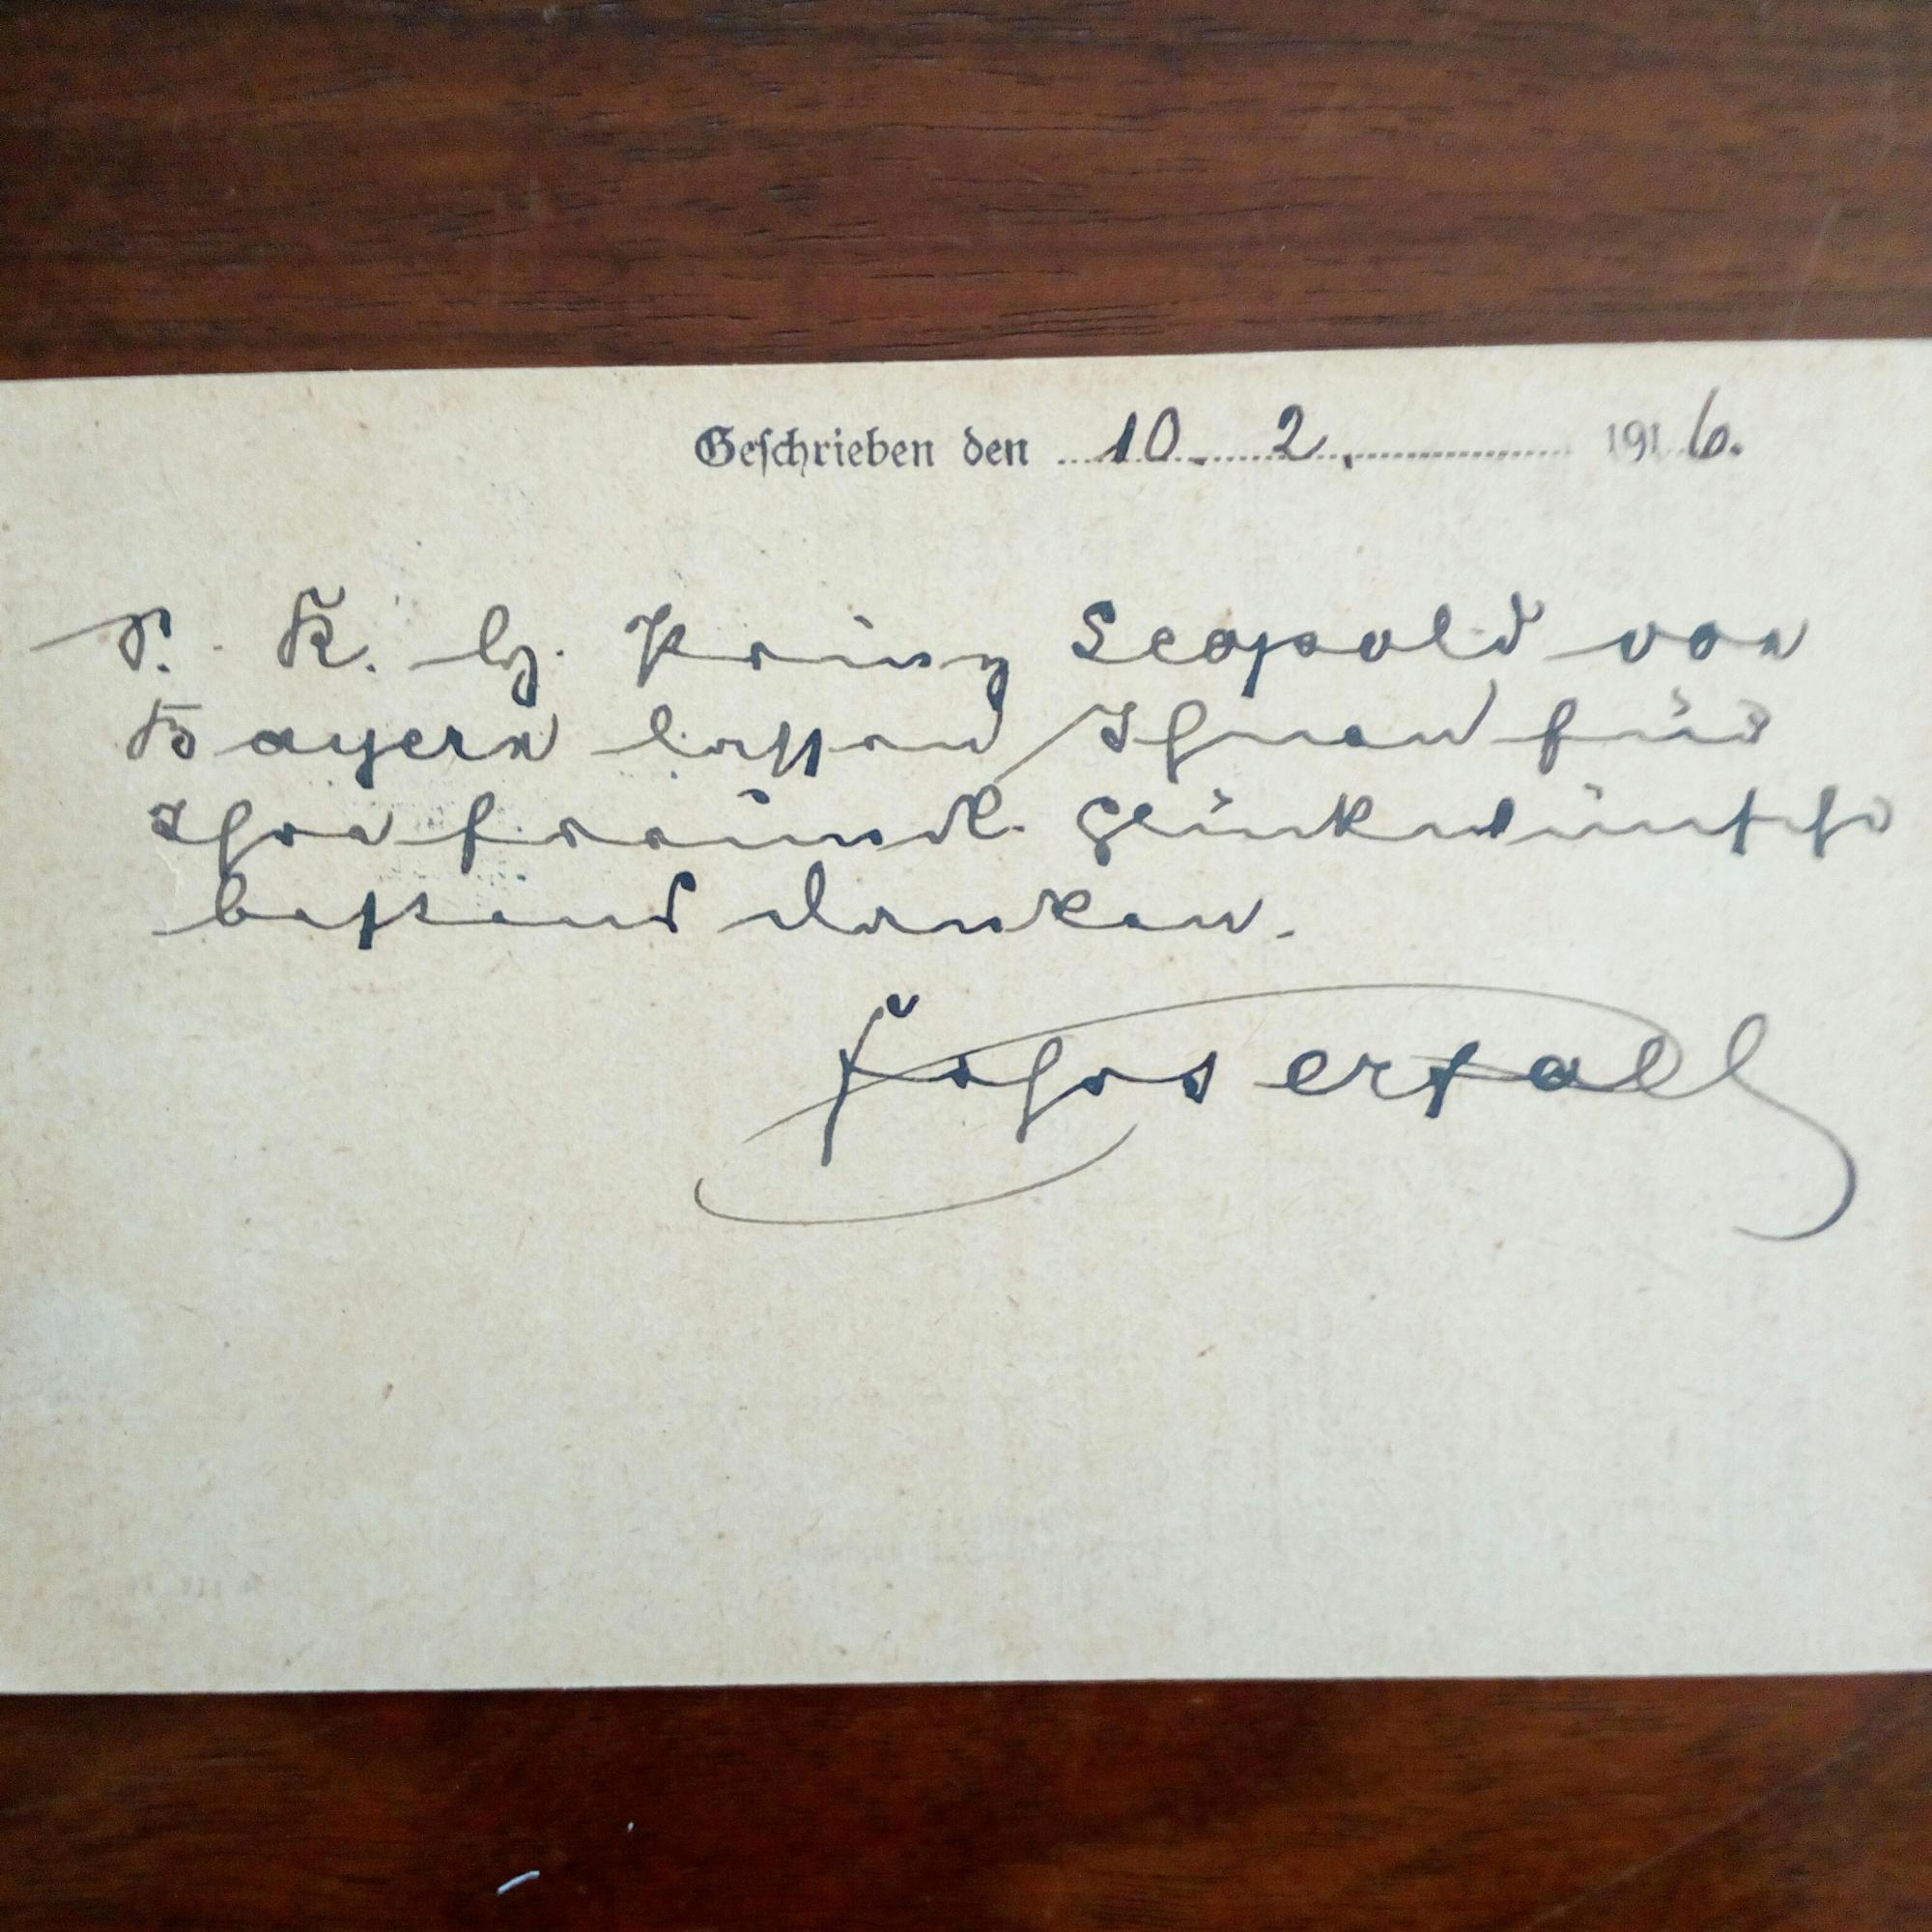 Geschrieben den 10. 2. 1916.
S. K. H. Prinz Leopold von
Bayern lassen Ihnen für
Ihre freundl. Glückwünsche
bestens danken.